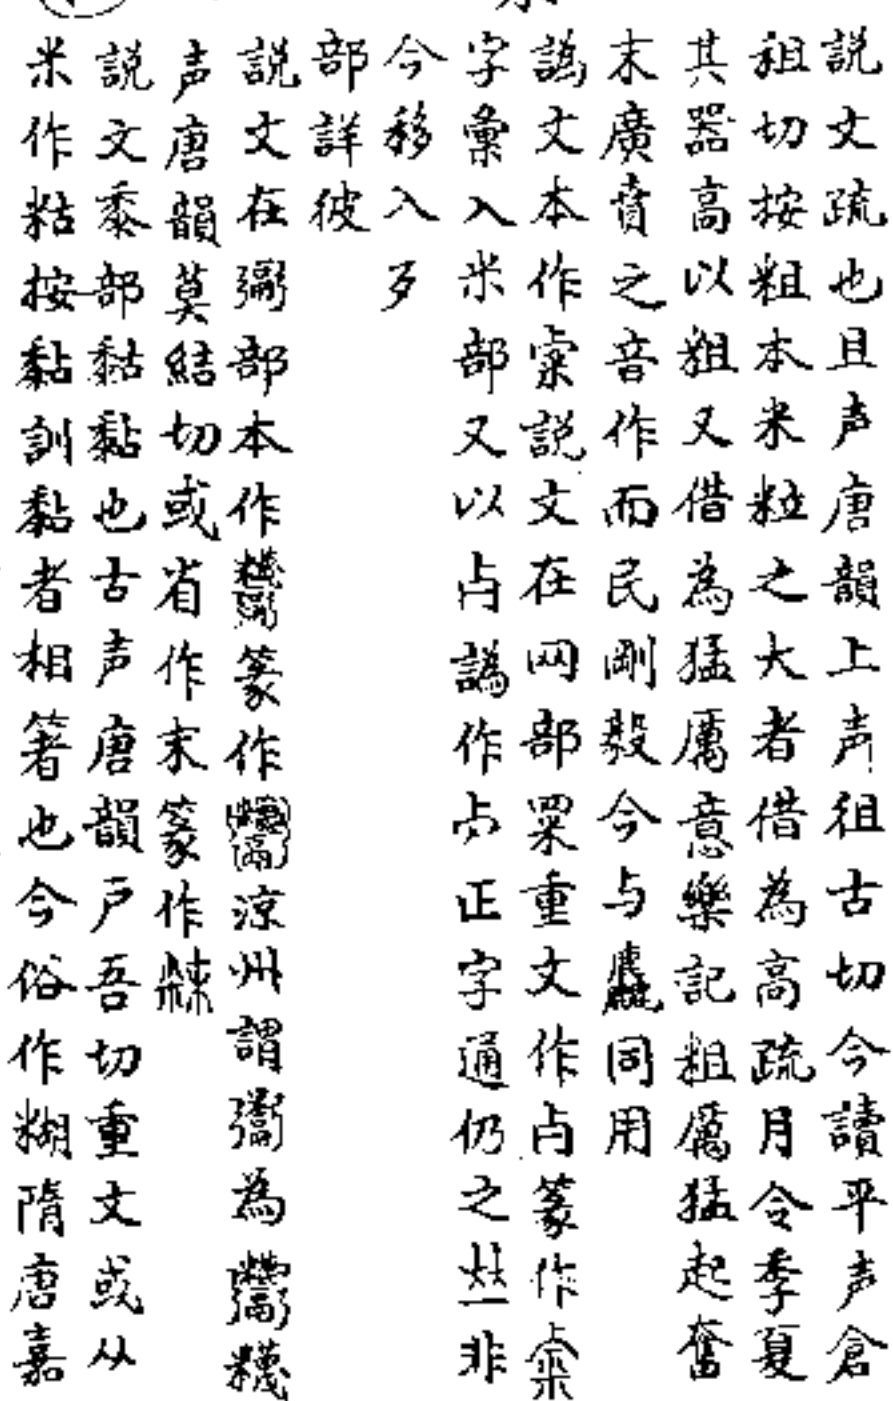 説文疏也且声唐韻上声徂古切今讀平声倉
秿切按粗本米粒之大者借為高疏月令季夏
其器高以粗又借為猛厲意樂記粗厲猛起奮
末廣賁之音作而民剛毅今与麤同用
譌文本作䍘説文在网部罙重文作㐁篆作
字彙入米部又以㐁譌作歺正字通仍之𠀤非
今移入歹
部詳彼
説文在䰜部本作篆作涼州謂鬻為䉾
声唐韻莫結切或省作末篆作䊳
説文黍部黏黏也古声唐韻戸吾切重文或从
米作粘按黏訓黏者相箸也今俗作糊隋唐嘉